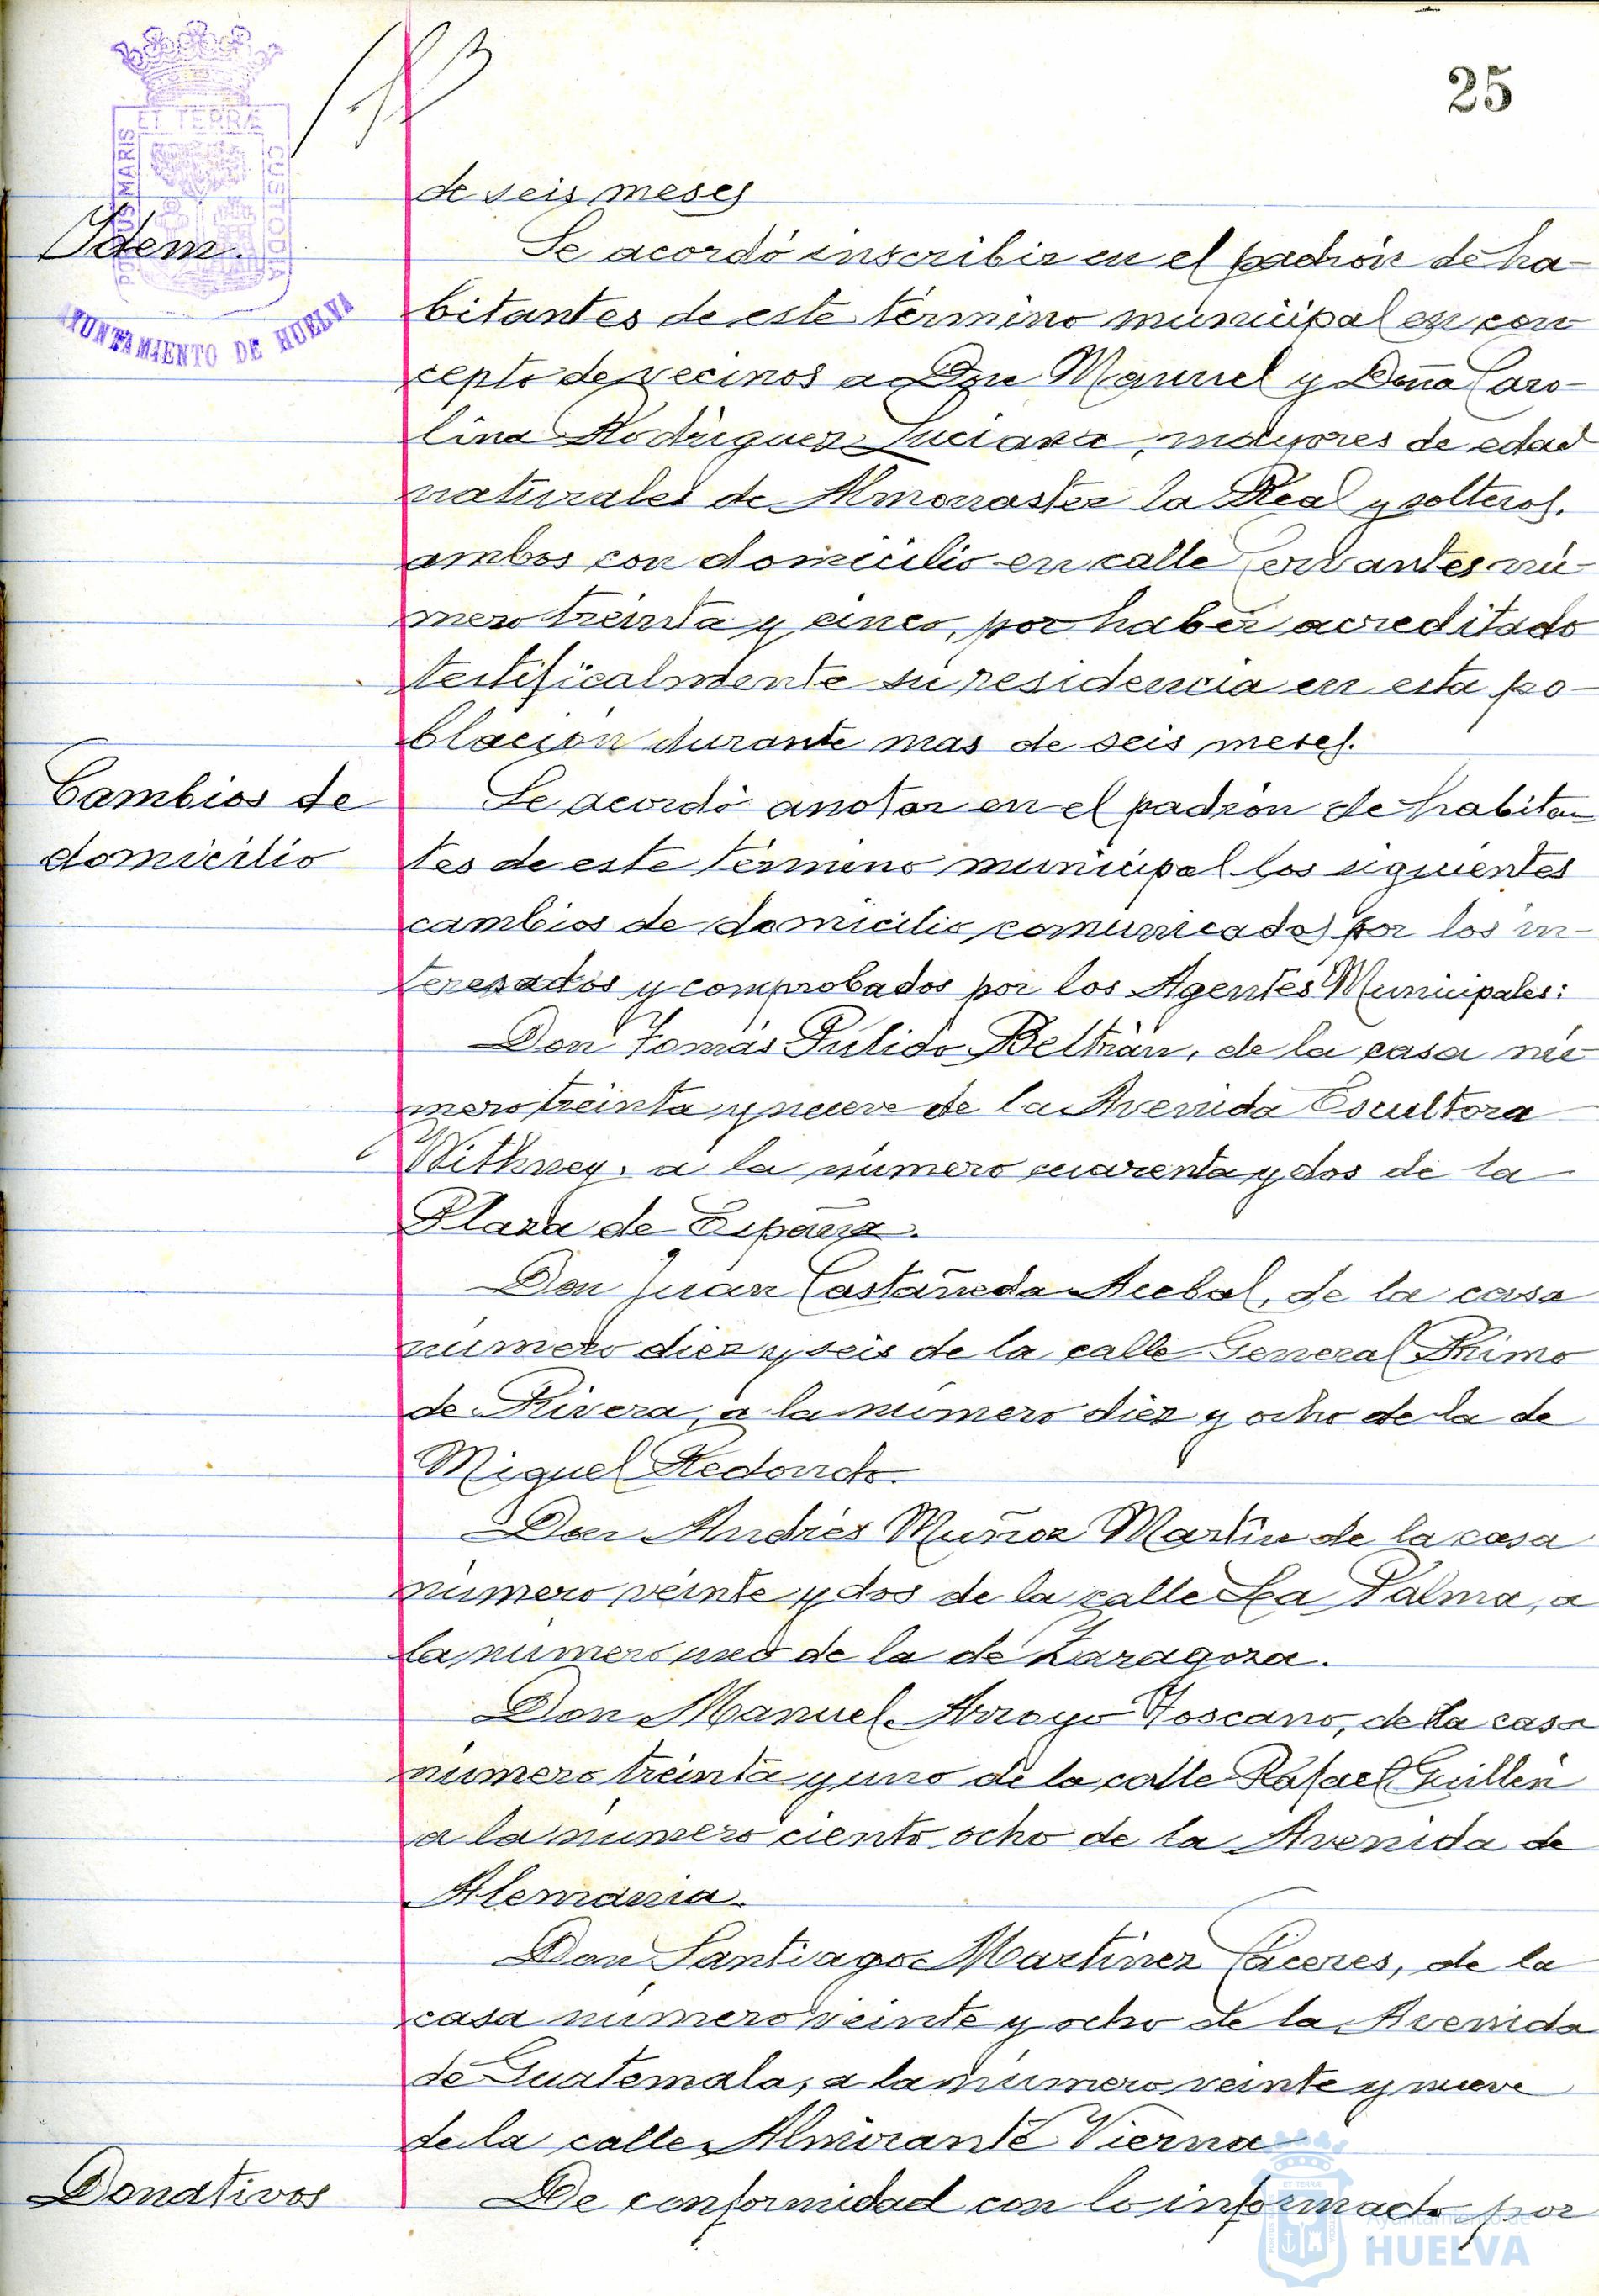 25
ET TERRÆ
MARIS
CUSTODIA
AYUNTAMIENTO DE HUELVA
de seis meses
Idem.
Se acordó inscribir en el padrón de ha-
bitantes de este término municipal en con
cepto de vecinos a Don Manuel y Doña Caro-
lina Rodriguez Luciana, mayores de edad
naturales de Almonaster la Real y solteros.
ambos con domicilio en calle Cervantes nú-
mero treinta y cinco, por haber acreditado
testificalmente su residencia en esta po-
blación durante mas de seis meses.
Cambios de
domicilio
Se acordó anotar en el padrón de habitan
tes de este término municipal los siguientes
cambios de domicilio comunicados por los in-
teresados y comprobados por los Agentes Municipales:
Don Tomás Pulido Beltrán, de la casa nú
mero treinta y nueve de la Avenida Escultora
Withney, a la número cuarenta y dos de la
Plaza de España.
Don Juan Castañeda Acebal, de la casa
número diez y seis de la calle General Primo
de Rivera, a la número diez y ocho de la de
Miguel Redondo.
Don Andrés Muñoz Martín de la casa
número veinte y dos de la calle La Palma, a
la número uno de la de Zaragoza.
Don Manuel Arroyo Toscano, de la casa
número treinta y uno de la calle Rafael Guillén
a la número ciento ocho de la Avenida de
Alemania.
Don Santiago Martinez Cáceres, de la
casa número veinte y ocho de la Avenida
de Guatemala, a la número veinte y nueve
de la calle Almirante Vierna
Donativos
De conformidad con lo informado por
Ayuntamiento de
HUELVA